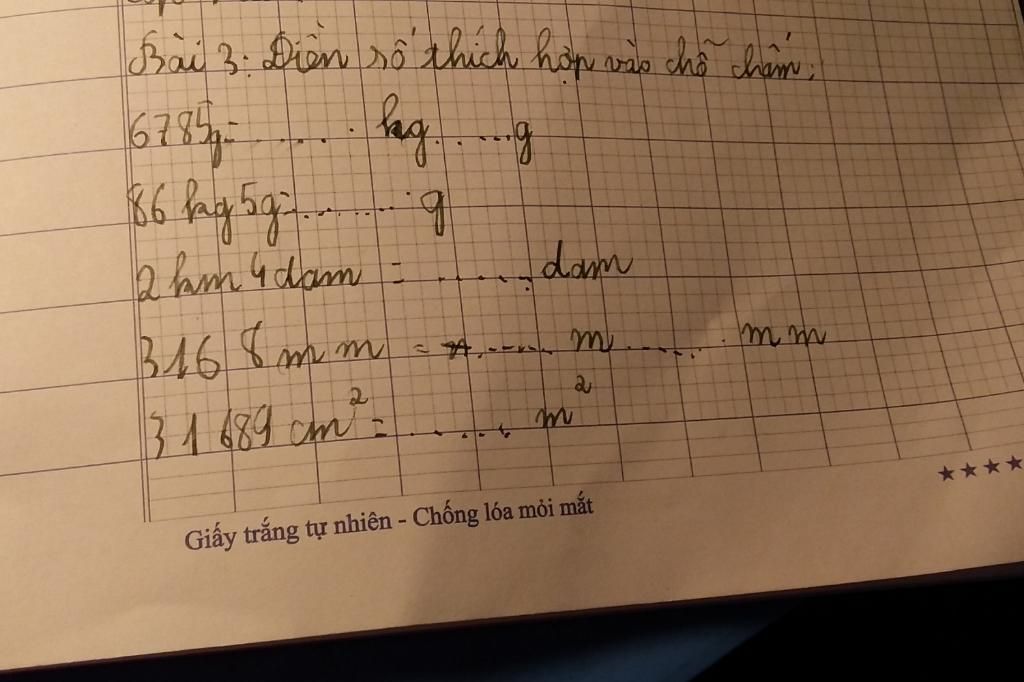 Bài 3: Điền số thích hợp vào chỗ chấm:
6785g = ....... kg ......g
86 kg 5g = ......... g
2 hm 4 dam = ....... dam
3168 mm = ....... m ....... mm
31689 cm² = ....... m²
★★★★
Giấy trắng tự nhiên - Chống lóa mỏi mắt